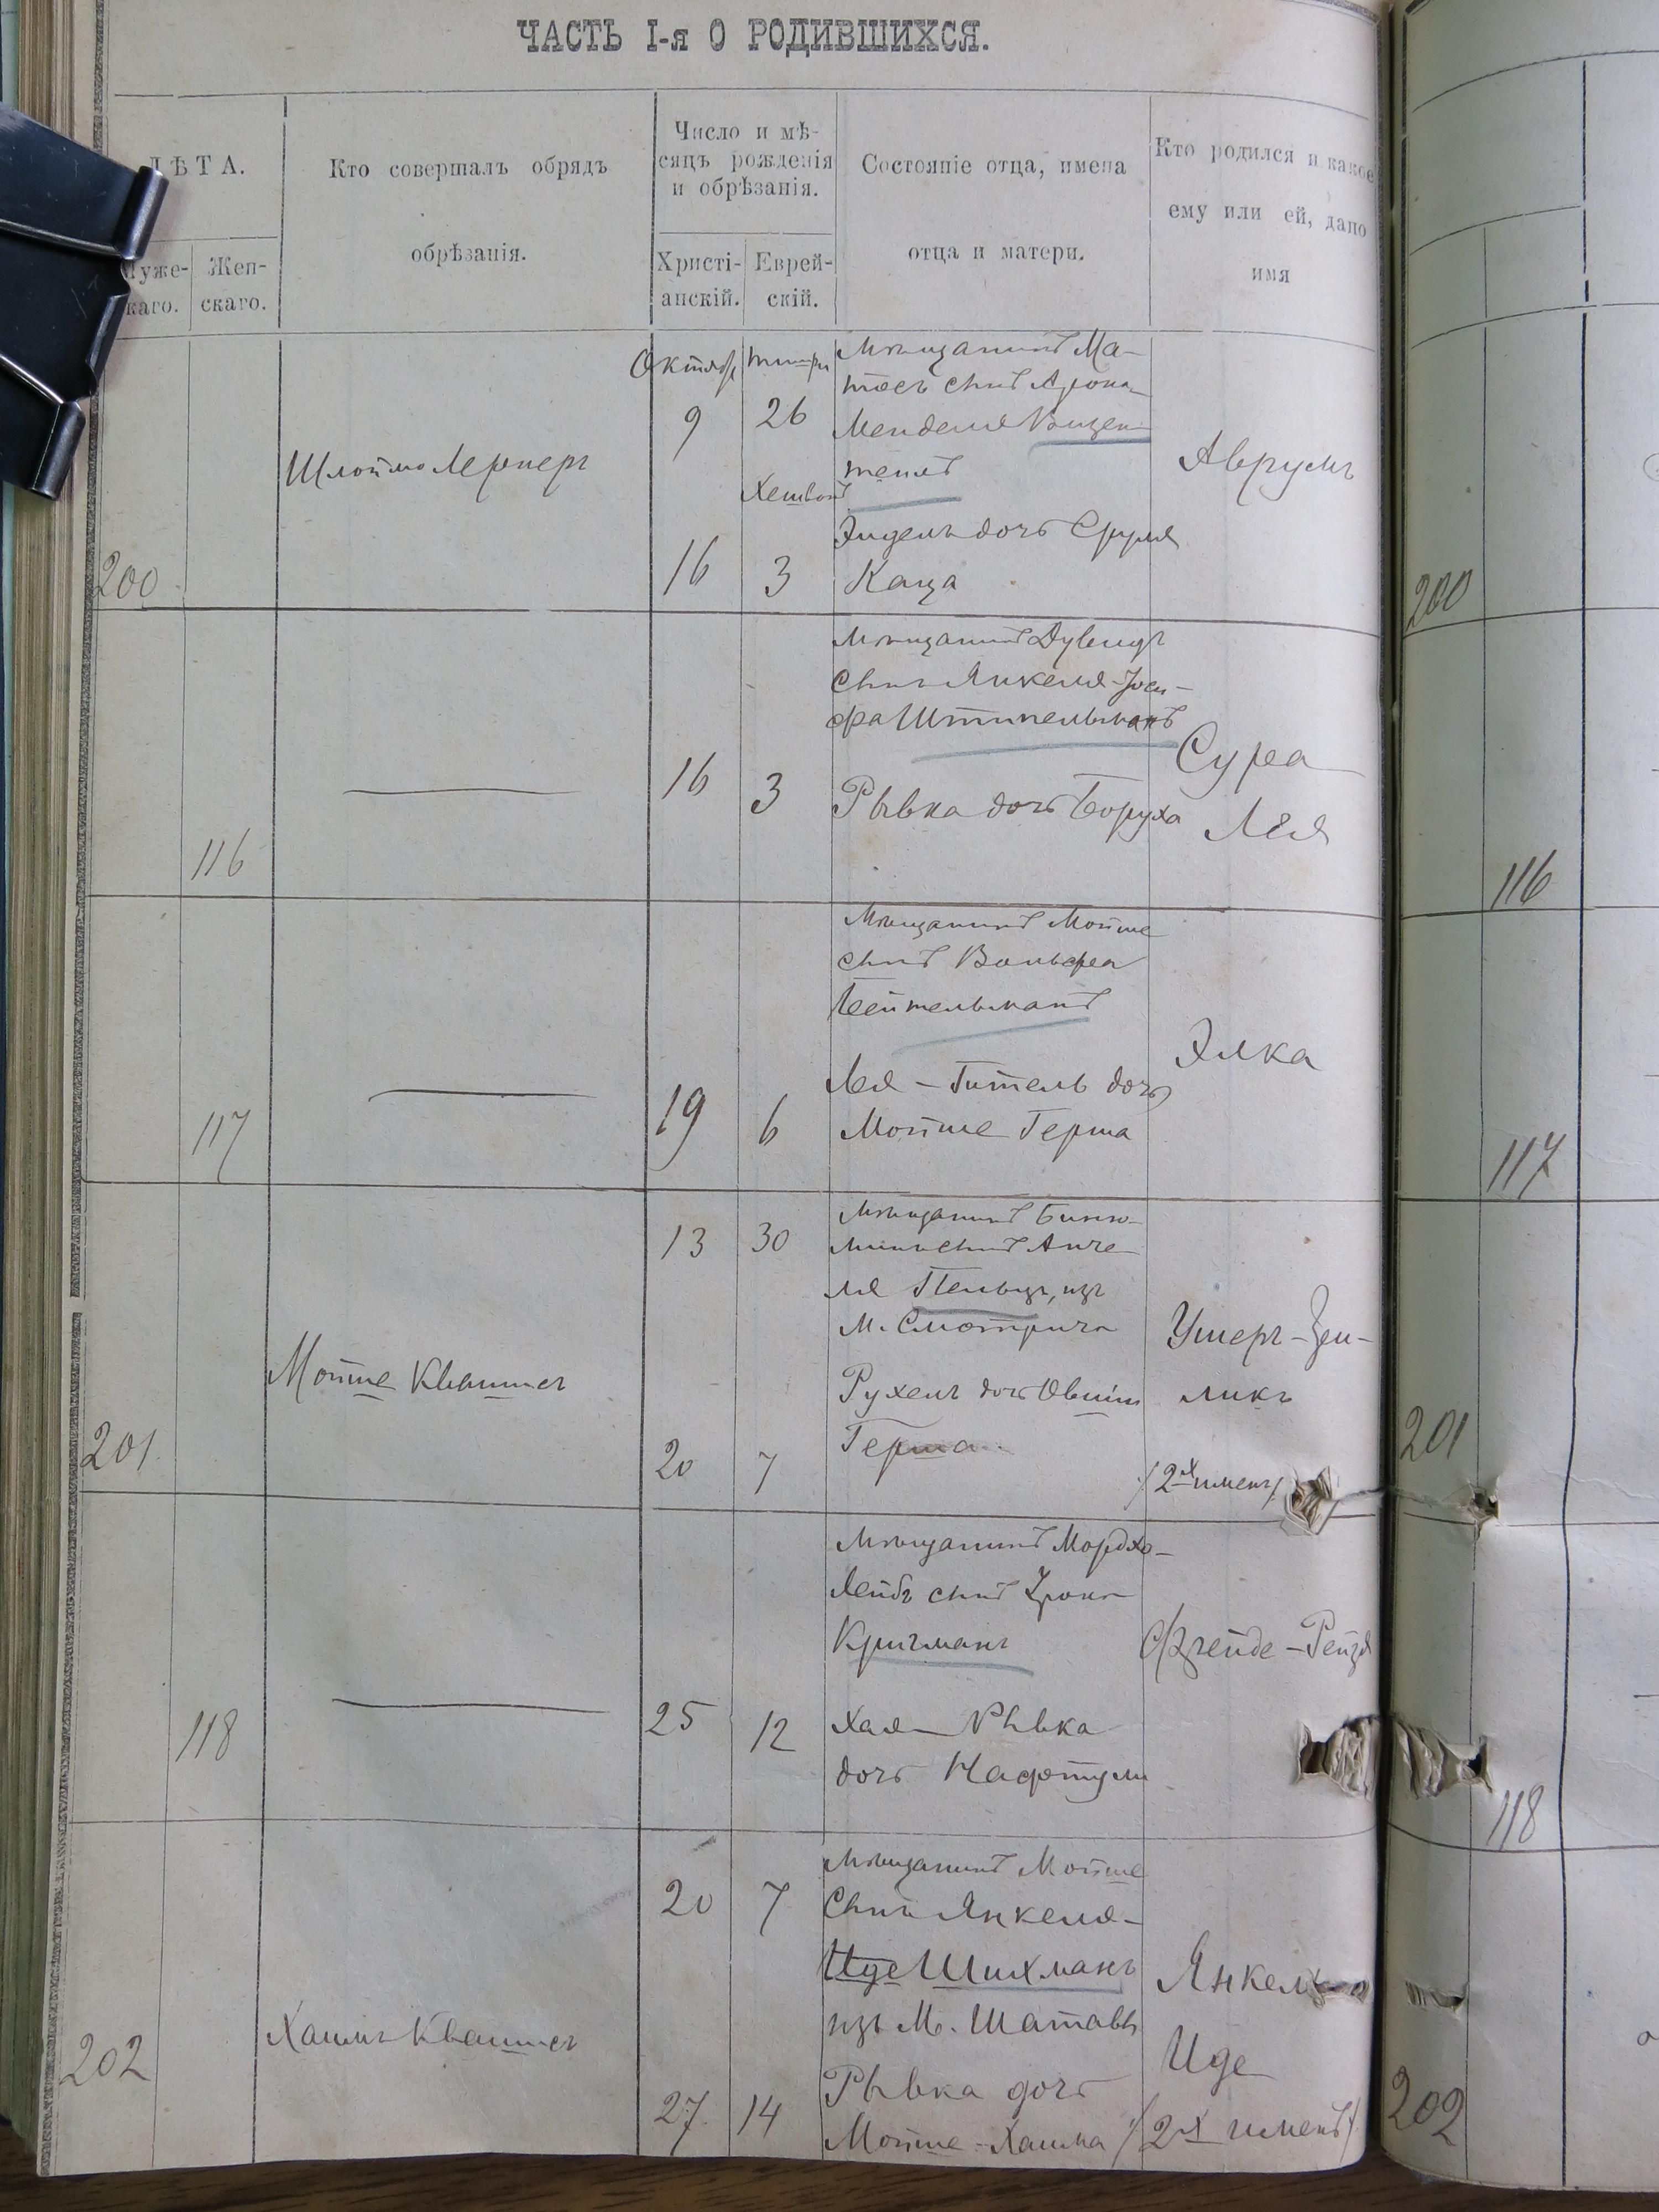 ЧАСТЬ I-я О РОДИВШИХСЯ.
ЛѢТА.
Муже-
скаго.
Жен-
скаго.
Кто совершалъ обрядъ
обрѣзанія.
Число и мѣ-
сяцъ рожденія
и обрѣзанія.
Христі-
анскій.
Еврей-
скій.
Состояніе отца, имена
отца и матери.
Кто родился и какое
ему или ей, дано
имя
200
Шлоймо Лернеръ
Октябр
9
16
тишри
26
Хешвон
3
Мѣщанинъ Ма-
тосъ сынъ Арона
Менделя Вицен
тель
Эйдель дочь Сруля
Каца
Аврумъ
200
116
16
3
Мѣщанинъ Дувидъ
сынъ Янкеля-Іоси-
фа Штипельманъ
Рывка дочь Боруха
Сура
Лея
116
117
19
6
Мѣщанинъ Мойше
сынъ Вольфа
Бейтельманъ
Лея-Гитель дочь
Мойше Герша
Элка
117
201
Мойше Квашисъ
13
20
30
7
Мѣщанинъ Биню-
минъ сынъ Анче-
ля Пельцъ, изъ
М. Смотрича
Рухель дочь Овшіи
Герша
Ушеръ-Зеи-
ликъ
/2хъ именъ/
201
118
25
12
Мѣщанинъ Мордхо-
Лейбъ сынъ Арона
Кричманъ
Хая-Рывка
дочь Нафтули
Фрейде-Рейзя
118
202
Хаимъ Квашисъ
20
27
7
14
Мѣщанинъ Мойше
Сынъ Янкеля-
Иде Шихманъ
изъ М. Шатавы
Рывка дочь
Мойше-Хаима
Янкель
Иде
/2х именъ/
202